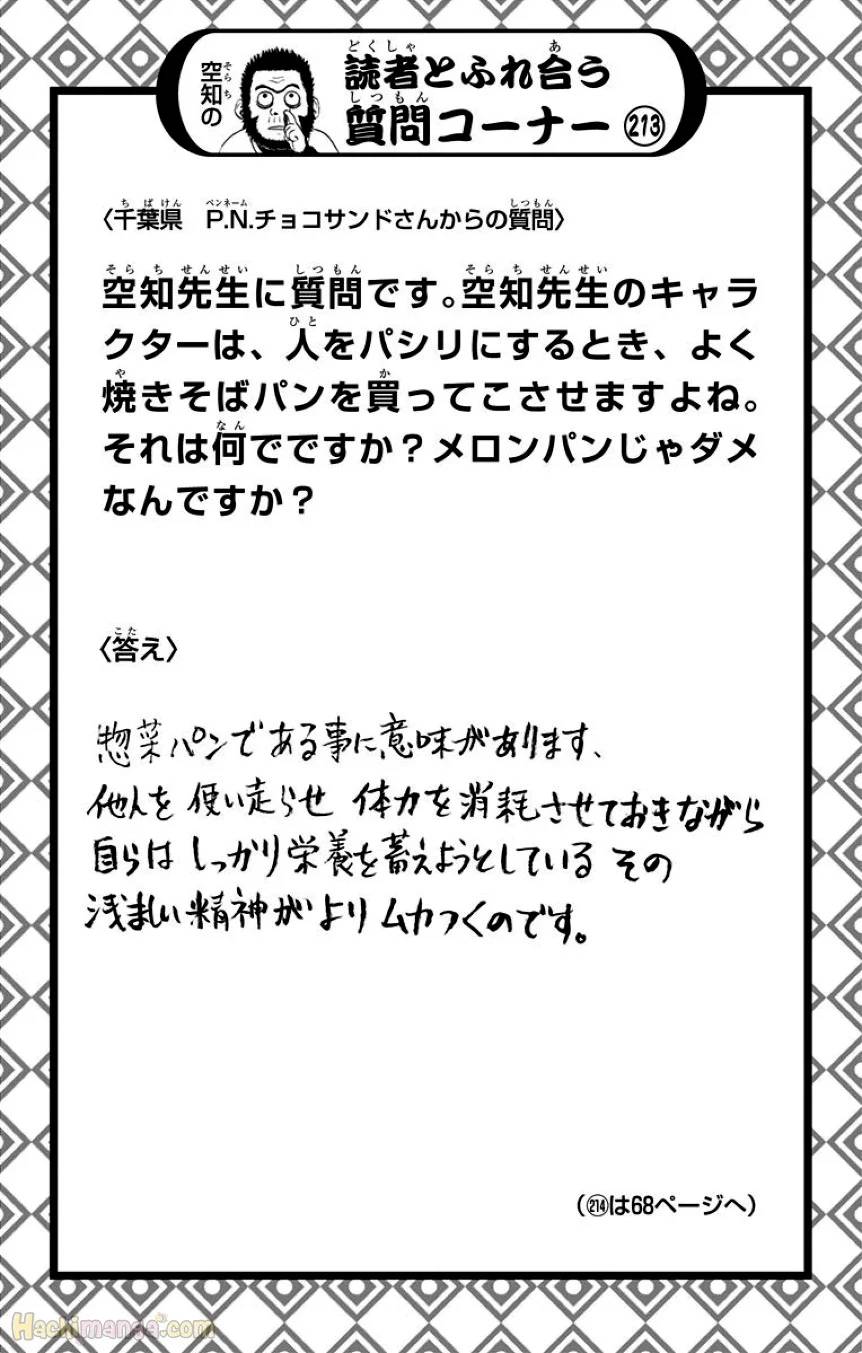 空知の
読者とふれ合う
質問コーナー 213
〈千葉県　P.N.チョコサンドさんからの質問〉
空知先生に質問です。空知先生のキャラ
クターは、人をパシリにするとき、よく
焼きそばパンを買ってこさせますよね。
それは何でですか？メロンパンじゃダメ
なんですか？
〈答え〉
惣菜パンである事に意味があります、
他人を使い走らせ 体力を消耗させておきながら
自らはしっかり栄養を蓄えようとしている その
浅ましい精神がよりムカつくのです。
（214は68ページへ）
Hachimanga.com